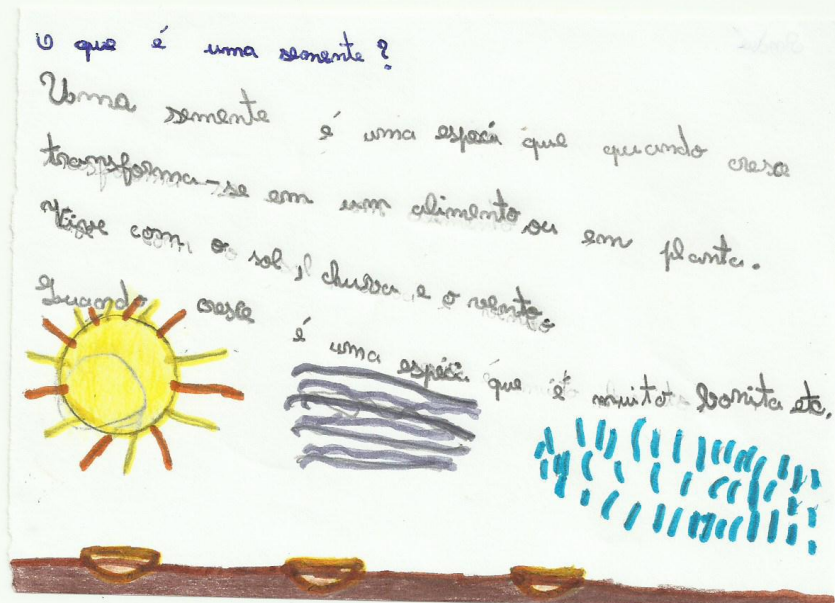 O que é uma semente?
Uma semente é uma especi que quando crese
transforma-se em um alimento, ou em planta.
Vive com o sol, chuva, e o vento.
Quando cresce é uma especi que é muito bonita etc.